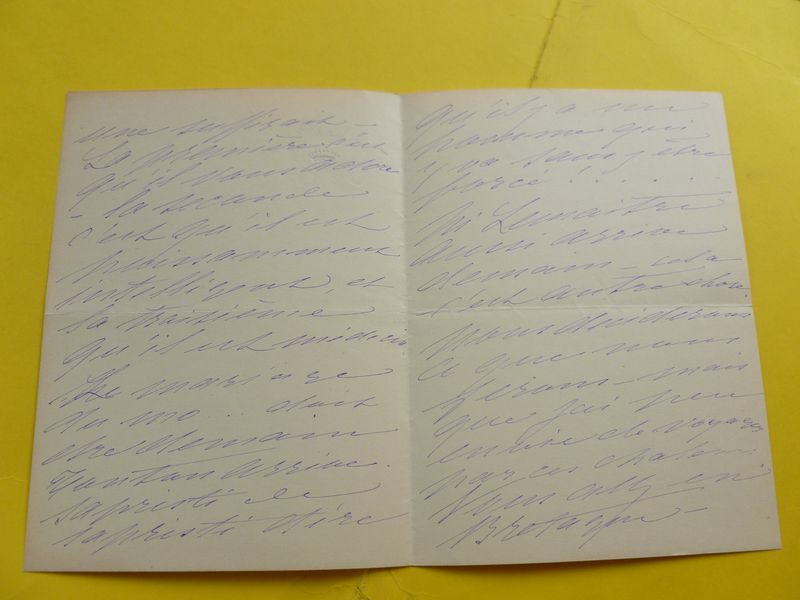 une suffirait –
La première c'est
qu'il vous adore
– la seconde
c'est qu'il est
puissamment
intelligent, et
la troisième
qu'il est médecin
Le mariage
du mo.. doit
être demain
arrive.
sapristi de
sapristi dire
qu'il y a un
homme qui
y va sans y être
forcé ! . . . . .
Si Lemaitre
aussi arrive
demain – cela
c'est autre chose
nous déciderons
ce que nous
ferons – mais
que j'ai peu
envie de voyages
par ces chaleurs
Vous allez en
Bretagne –